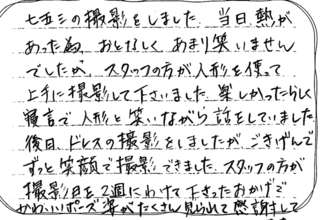 七五三の撮影をしました。当日熱が
あった為、おとなしく、あまり笑いません
でしたが、スタッフの方が人形を使って
上手に撮影して下さいました。楽しかったらしく
寝言で人形と笑いながら話をしていました。
後日、ドレスの撮影をしましたが、ごきげんで
ずっと笑顔で撮影できました。スタッフの方が
撮影日を2週にわけて下さったおかげで
かわいいポーズ、姿がたくさん見られて感謝して